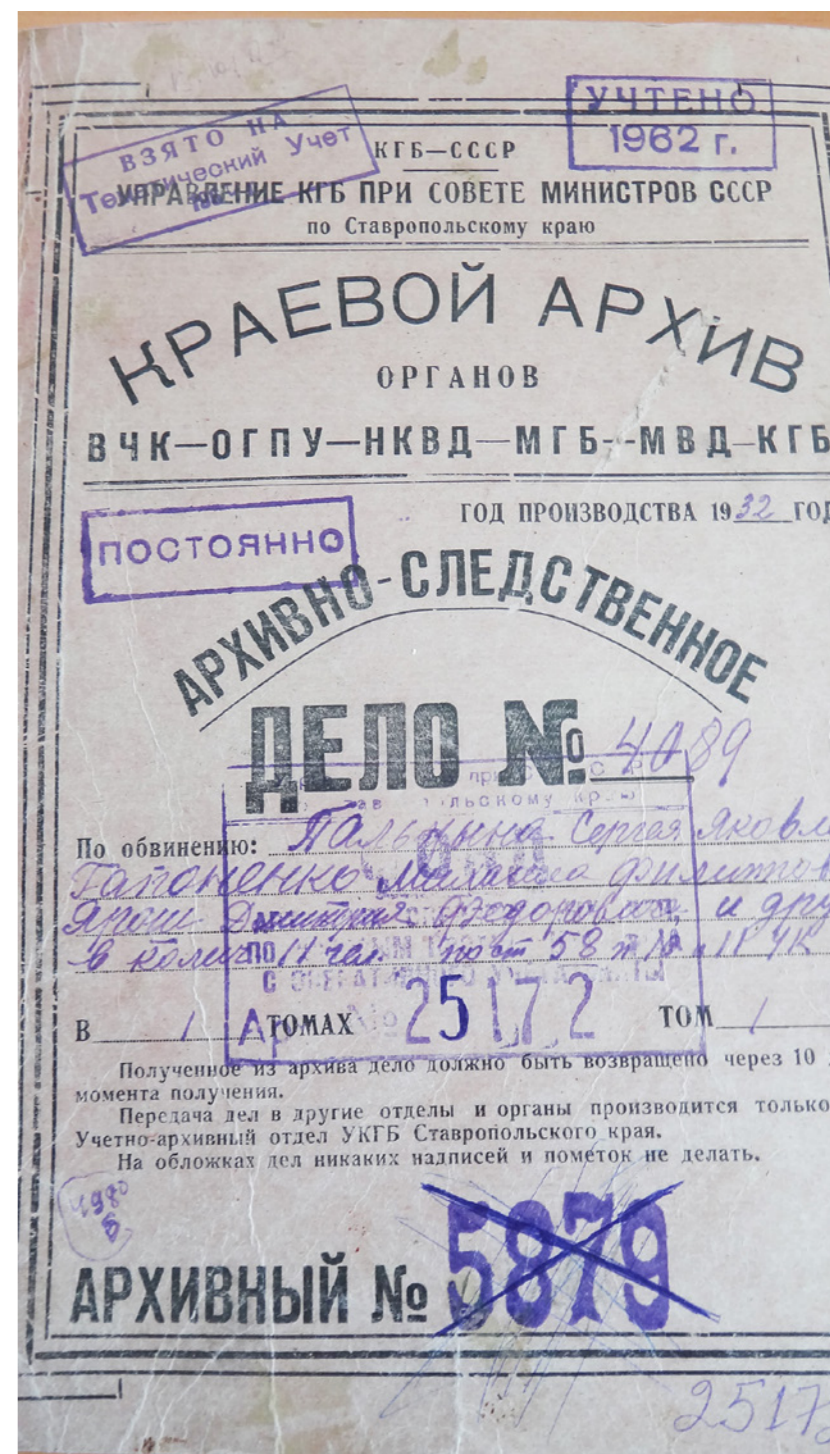 ВЗЯТО НА
Тематический Учет
УЧТЕНО
1962 г.
КГБ—СССР
УПРАВЛЕНИЕ КГБ ПРИ СОВЕТЕ МИНИСТРОВ СССР
по Ставропольскому краю
КРАЕВОЙ АРХИВ
ОРГАНОВ
ВЧК—ОГПУ—НКВД—МГБ--МВД—КГБ
ГОД ПРОИЗВОДСТВА 1932 ГОД
ПОСТОЯННО
АРХИВНО-СЛЕДСТВЕННОЕ
ДЕЛО № 4089
По обвинению: Сергея Яковл
Гапоненко Михаила Филиппов
Ярош Дмитрия Федоровича, и дру
в колич 11 чел. по ст 58 УК
В 1 ТОМАХ ТОМ 1
Ар № 25172
Полученное из архива дело должно быть возвращено через 10
момента получения.
Передача дел в другие отделы и органы производится только
Учетно-архивный отдел УКГБ Ставропольского края.
На обложках дел никаких надписей и пометок не делать.
АРХИВНЫЙ № 5879
2517